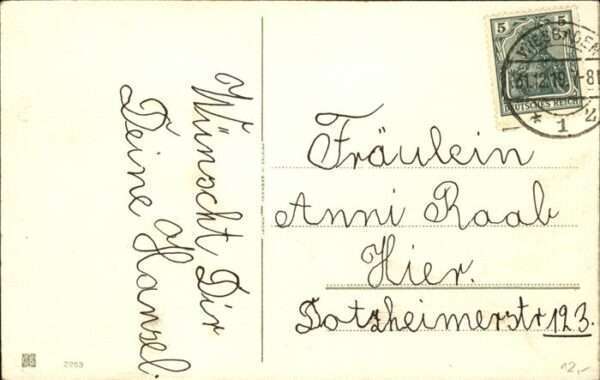 Wünscht Dir
Deine Hansel.
5 5
WIESBADEN
31.12.10. 7-8
DEUTSCHES REICH
* 1 2
Fräulein
Anni Raab
Hier.
Dotzheimerstr 123.
2253
12,-